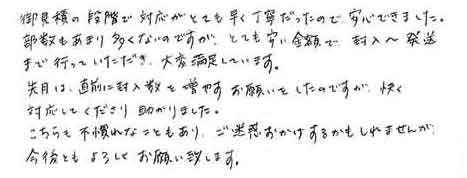 御見積の段階で対応がとても早く丁寧だったので、安心できました。
部数もあまり多くないのですが、とても安い金額で封入〜発送
まで行っていただき、大変満足しています。
先月は、直前に封入数を増やすお願いをしたのですが、快く
対応してくださり助かりました。
こちらも不慣れなこともあり、ご迷惑おかけするかもしれませんが、
今後ともよろしくお願い致します。